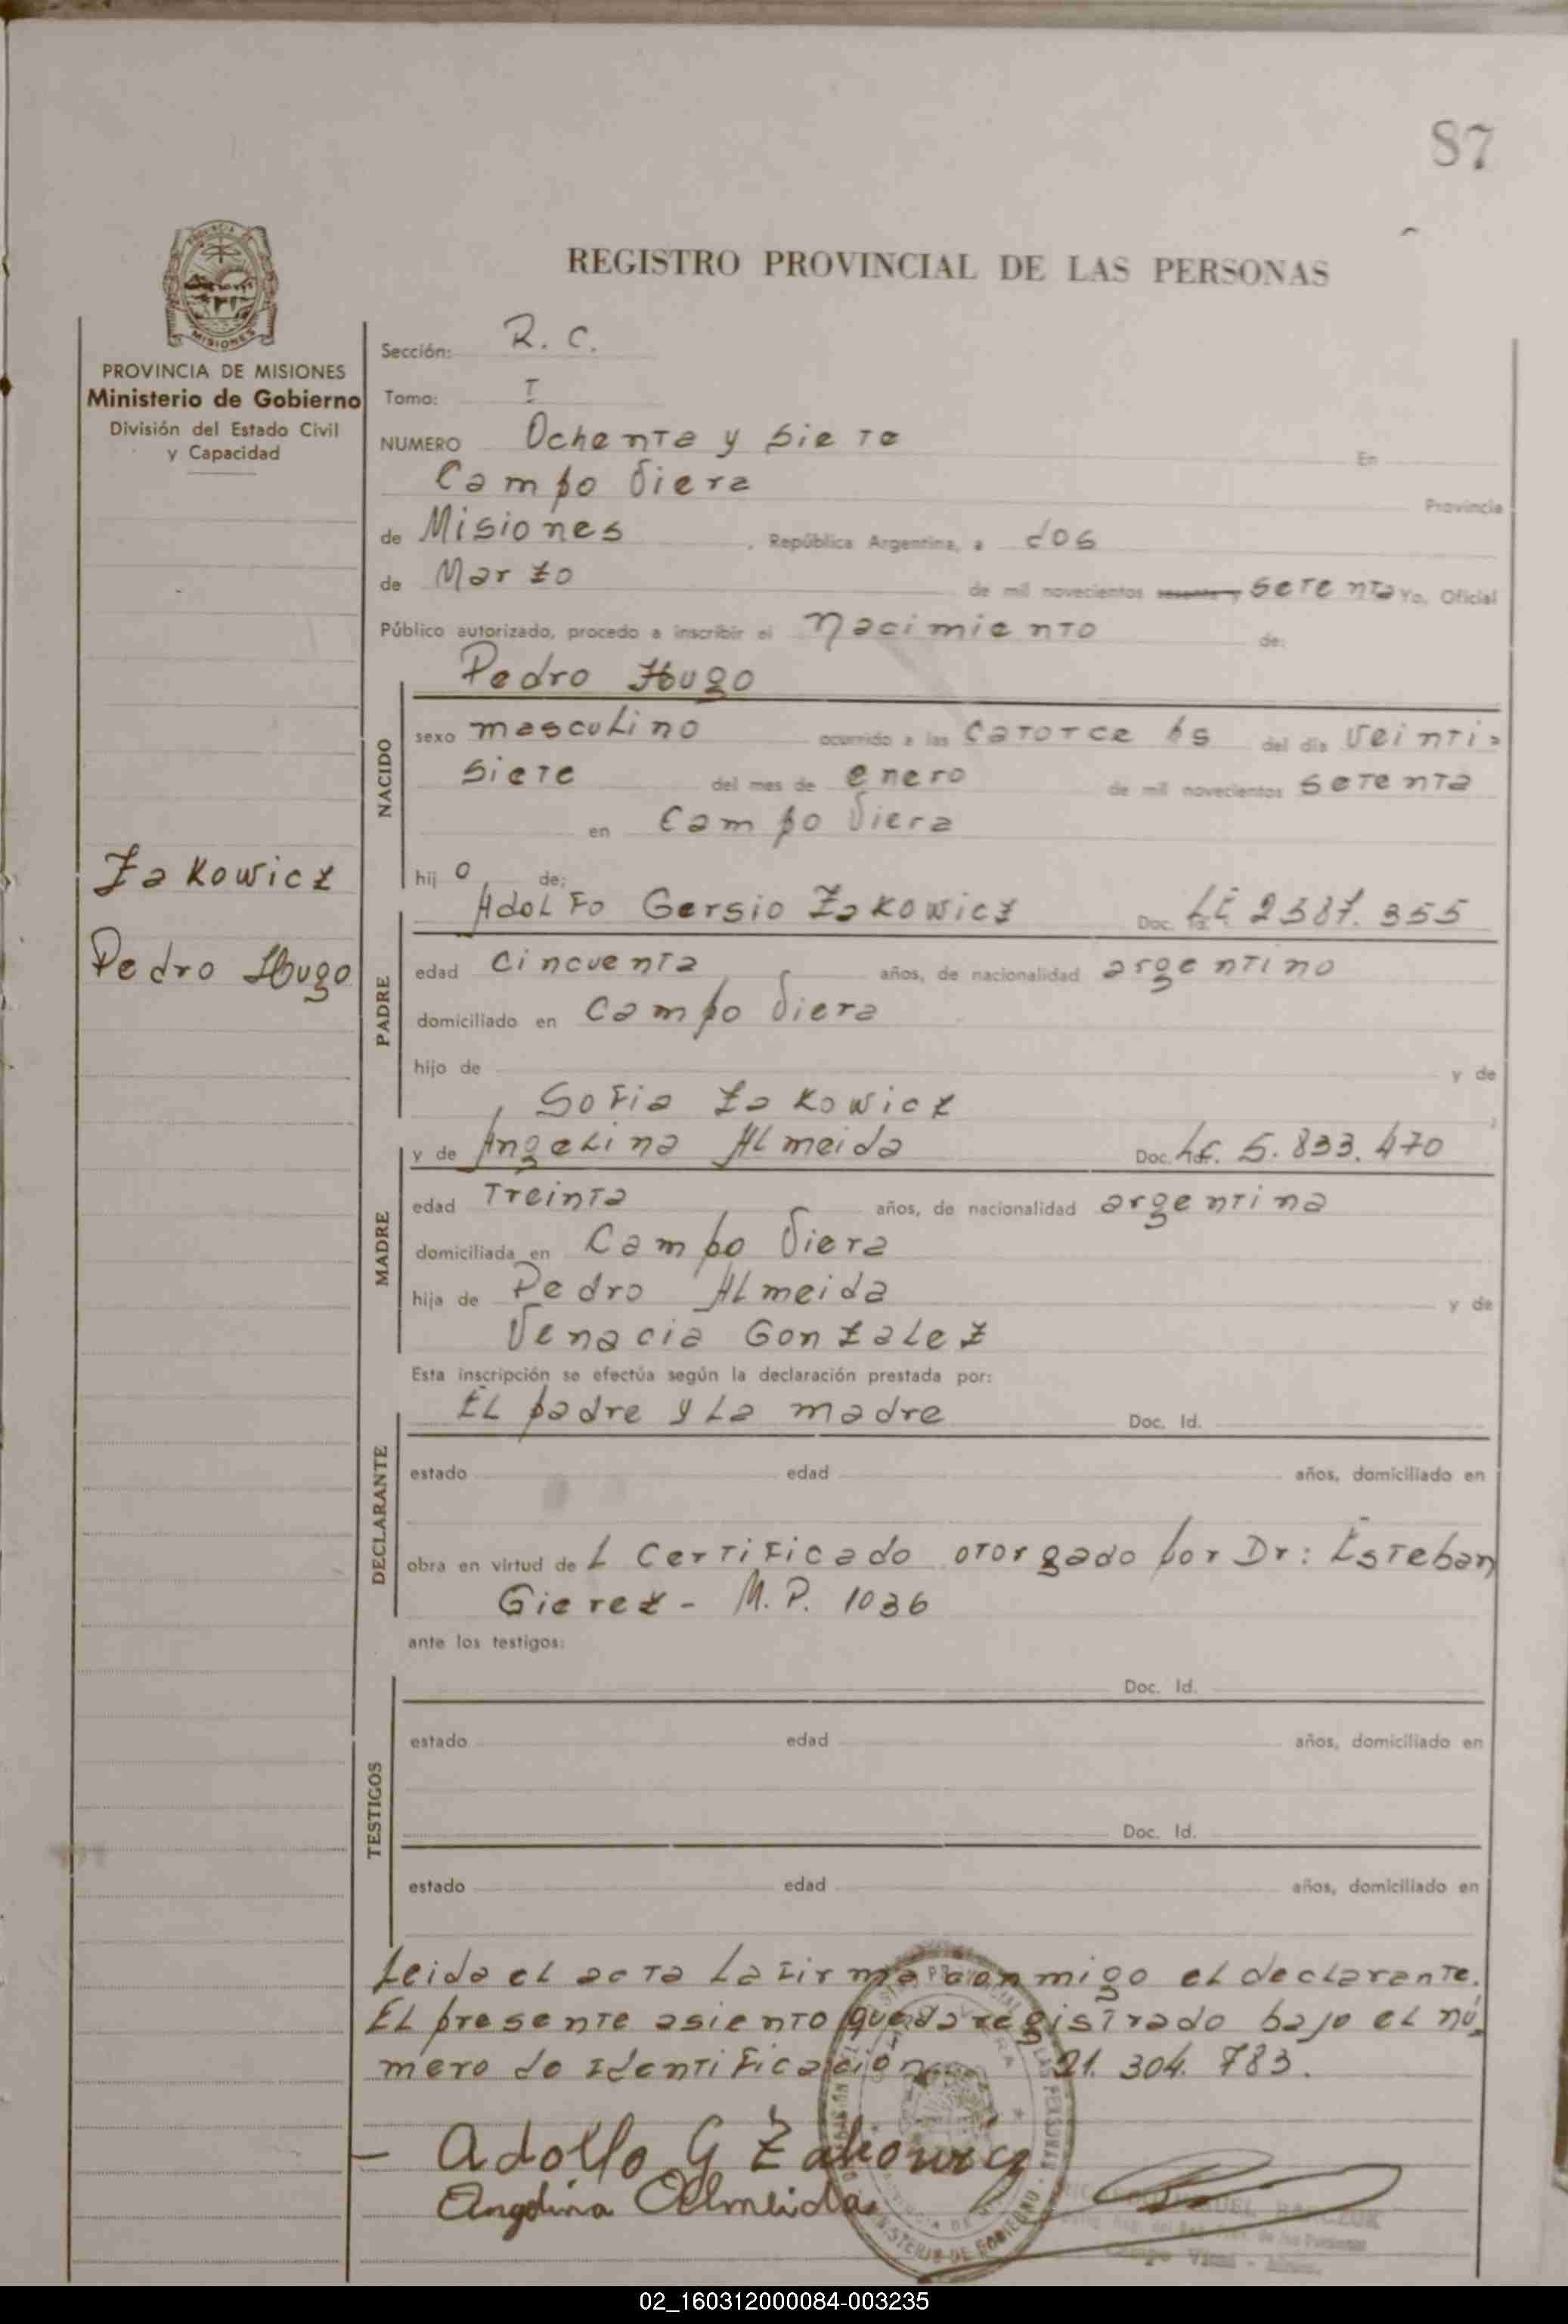 87
REGISTRO PROVINCIAL DE LAS PERSONAS
MISIONES
PROVINCIA DE MISIONES
Ministerio de Gobierno
División del Estado Civil
y Capacidad
Zakowicz
Pedro Hugo
Sección: R. C.
Tomo: I
NUMERO Ochenta y siete En
Campo Viera Provincia
de Misiones, República Argentina, a dos
de Marzo de mil novecientos sesenta y setenta Yo, Oficial
Público autorizado, procedo a inscribir el Nacimiento de:
Pedro Hugo
NACIDO
sexo masculino ocurrido a las catorce hs del día veinti-
siete del mes de enero de mil novecientos setenta
en Campo Viera
hijo de:
PADRE
Adolfo Gersio Zakowicz Doc. Id. L.E 2587.355
edad cincuenta años, de nacionalidad argentino
domiciliado en Campo Viera
hijo de y de
Sofia Zakowicz
MADRE
y de Angelina Almeida Doc. Id. L.C. 5.833.470
edad treinta años, de nacionalidad argentina
domiciliada en Campo Viera
hija de Pedro Almeida y de
Venacia Gonzalez
Esta inscripción se efectúa según la declaración prestada por:
DECLARANTE
El padre y la madre Doc. Id.
estado edad años, domiciliado en
obra en virtud de l certificado otorgado por Dr: Esteban
Gierez - M.P. 1036
ante los testigos:
TESTIGOS
Doc. Id.
estado edad años, domiciliado en
Doc. Id.
estado edad años, domiciliado en
Leida el acta la firma conmigo el declarante.
El presente asiento queda registrado bajo el nú-
mero de Identificación 21.304.783.
Adolfo G Zakowicz
Angelina Almeida
MINISTERIO DE GOBIERNO
02_160312000084-003235